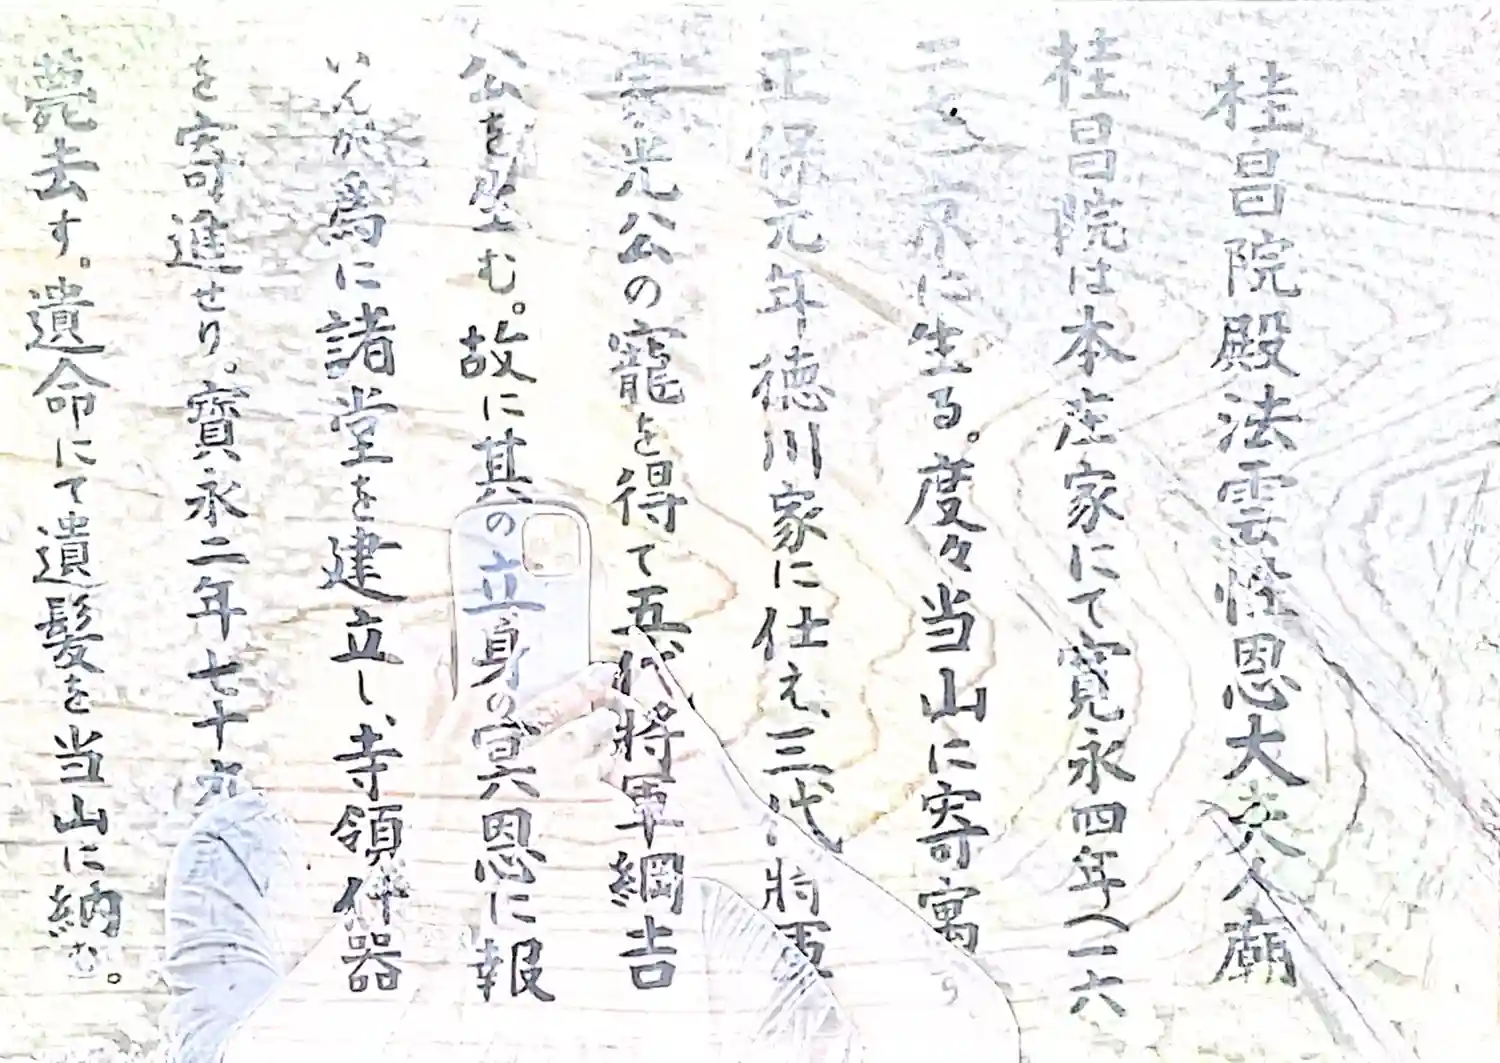 桂昌院殿法雲性恩大夫人廟
桂昌院は本庄家にて寛永四年(一六
二七)京に生る。度々当山に寄寓
正保元年徳川家に仕え、三代将軍
家光公の寵を得て五代将軍綱吉
公を生む。故に其の立身の冥恩に報
いんが為に諸堂を建立し寺領什器
を寄進せり。寶永二年七十九
薨去す。遺命にて遺髪を当山に納む。